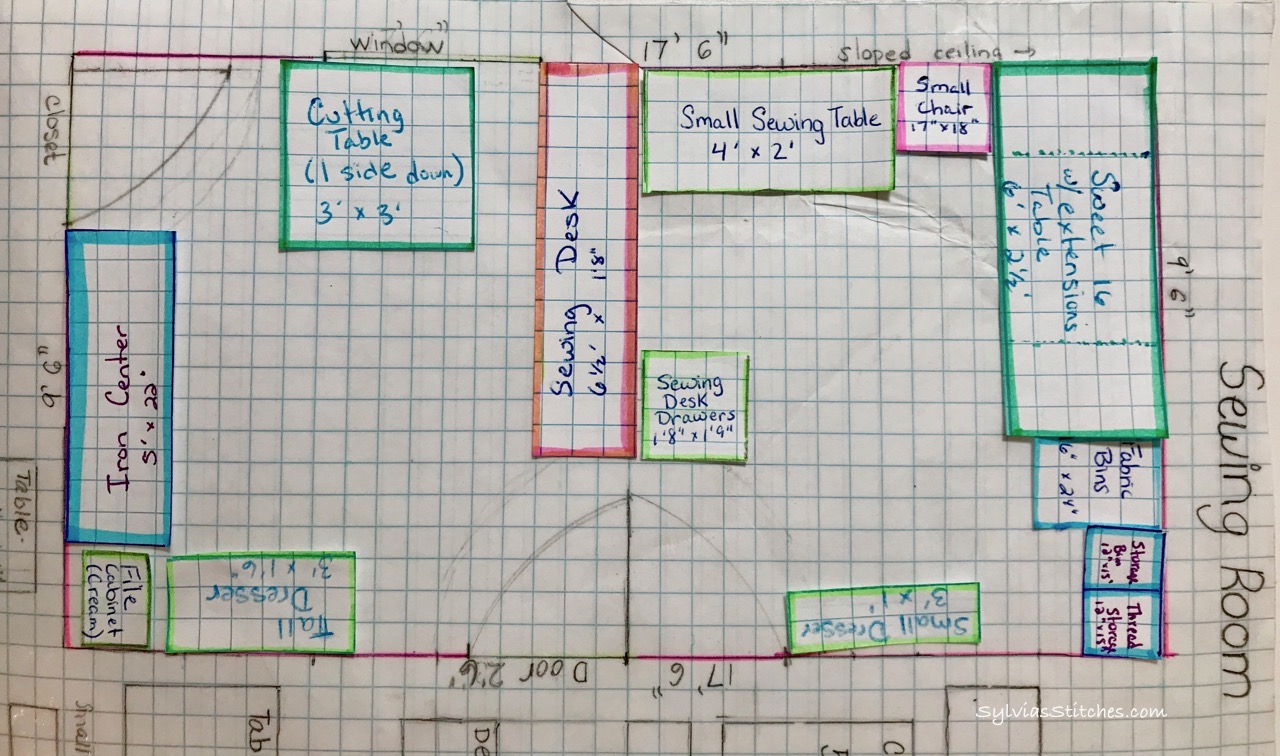 window
17' 6"
sloped ceiling →
closet
Cutting
Table
(1 side down)
3' x 3'
Sewing Desk
6 1/2' x 1'8"
Small Sewing Table
4' x 2'
Small
Chair
17"x18"
Sweet 16
w/ extensions
Table
6' x 2 1/2'
9' 6"
Sewing Room
Iron Center
5' x 22"
9' 6"
Sewing
Desk
Drawers
1'8" x 1'9"
Fabric
Bins
Storage
Bin
12"x15"
Thread
Storage
12"x15"
File
Cabinet
(Cream)
Tall
Dresser
3' x 1'6"
Small Dresser
3' x 1'
Door 2'6"
17' 6"
Table
Small
Tab
De
SylviasStitches.com